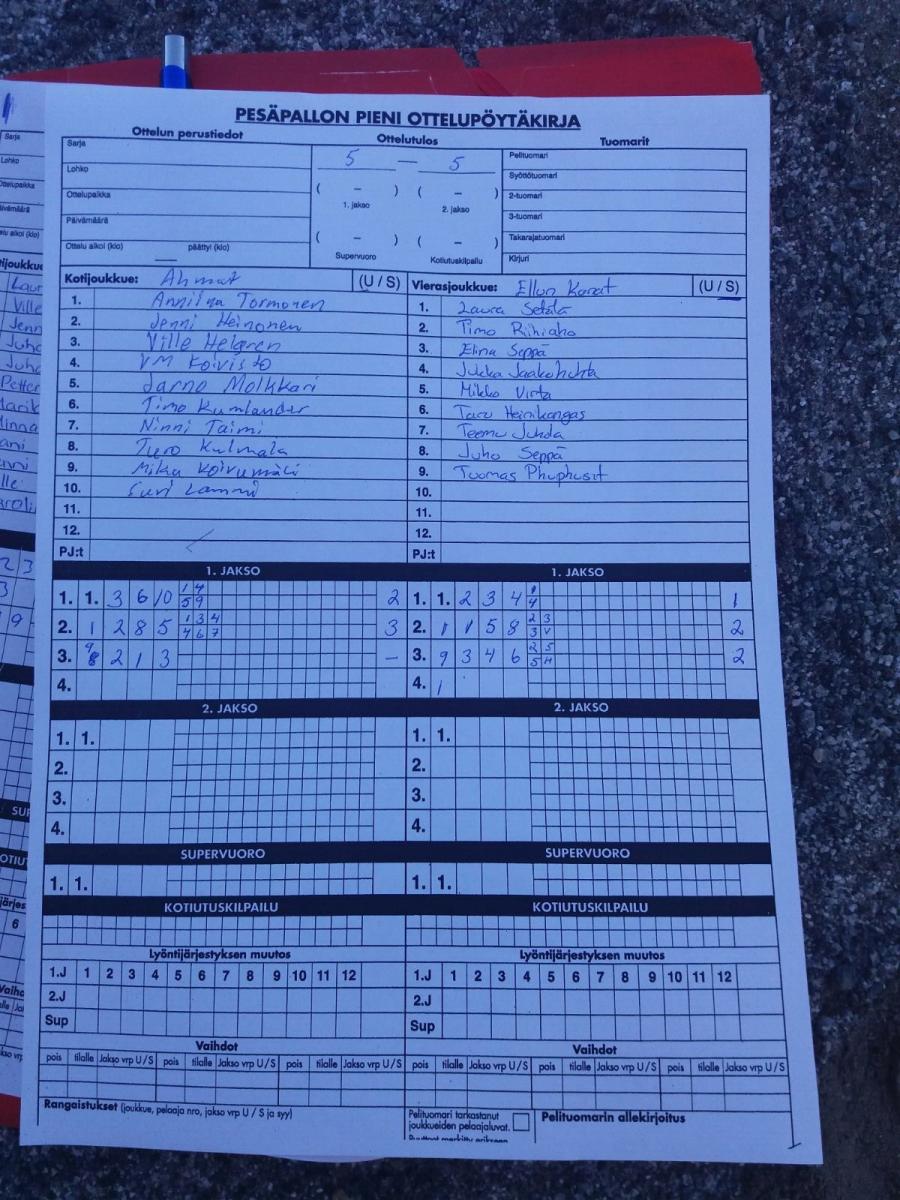 PESÄPALLON PIENI OTTELUPÖYTÄKIRJA
Ottelun perustiedot Ottelutulos Tuomarit
Sarja
Lohko
Ottelupaikka
Päivämäärä
Ottelu alkoi (klo) päättyi (klo)
5 — 5
( – ) ( – )
1. jakso 2. jakso
( – ) ( – )
Supervuoro Kotiutuskilpailu
Pelituomari
Syöttötuomari
2-tuomari
3-tuomari
Takarajatuomari
Kirjuri
Kotijoukkue: Ahmat (U / S)
1. Anniina Tormonen
2. Jenni Heinonen
3. Ville Helgren
4. VM Koivisto
5. Jarno Molkkari
6. Timo Kumlander
7. Ninni Taimi
8. Turo Kulmala
9. Mika Koivumäki
10. Suri Lammi
11.
12.
PJ:t
Vierasjoukkue: Ellun Kanat (U / S)
1. Laura Setälä
2. Timo Riihiaho
3. Elina Seppä
4. Jukka Jaakohuhta
5. Mikko Virta
6. Taru Heinikangas
7. Teemu Juhda
8. Juho Seppä
9. Tuomas Phuphusit
10.
11.
12.
PJ:t
1. JAKSO 1. JAKSO
1. 1. 3 6 10 1 4 5 9 2 1. 1. 2 3 4 4 1
2. 1 2 8 5 1 3 4 4 6 7 3 2. 1 1 5 8 2 3 3 V 2
3. 8 2 1 3 – 3. 9 3 4 6 2 5 5 H 2
4. 4. 1
2. JAKSO 2. JAKSO
1. 1. 1. 1.
2. 2.
3. 3.
4. 4.
SUPERVUORO SUPERVUORO
1. 1. 1. 1.
KOTIUTUSKILPAILU KOTIUTUSKILPAILU
Lyöntijärjestyksen muutos Lyöntijärjestyksen muutos
1.J 1 2 3 4 5 6 7 8 9 10 11 12 1.J 1 2 3 4 5 6 7 8 9 10 11 12
2.J 2.J
Sup Sup
Vaihdot Vaihdot
pois tilalle Jakso vrp U / S pois tilalle Jakso vrp U / S pois tilalle Jakso vrp U / S pois tilalle Jakso vrp U / S pois tilalle Jakso vrp U / S pois tilalle Jakso vrp U / S
Rangaistukset (joukkue, pelaaja nro, jakso vrp U / S ja syy)
Pelituomari tarkastanut
joukkueiden pelaajaluvat.
Pelituomarin allekirjoitus